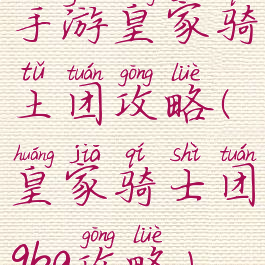 手游皇家骑
tǔ tuán gōng lüè
土团攻略(
huáng jiā qí shì tuán
皇家骑士团
gōng lüè
gba攻略)